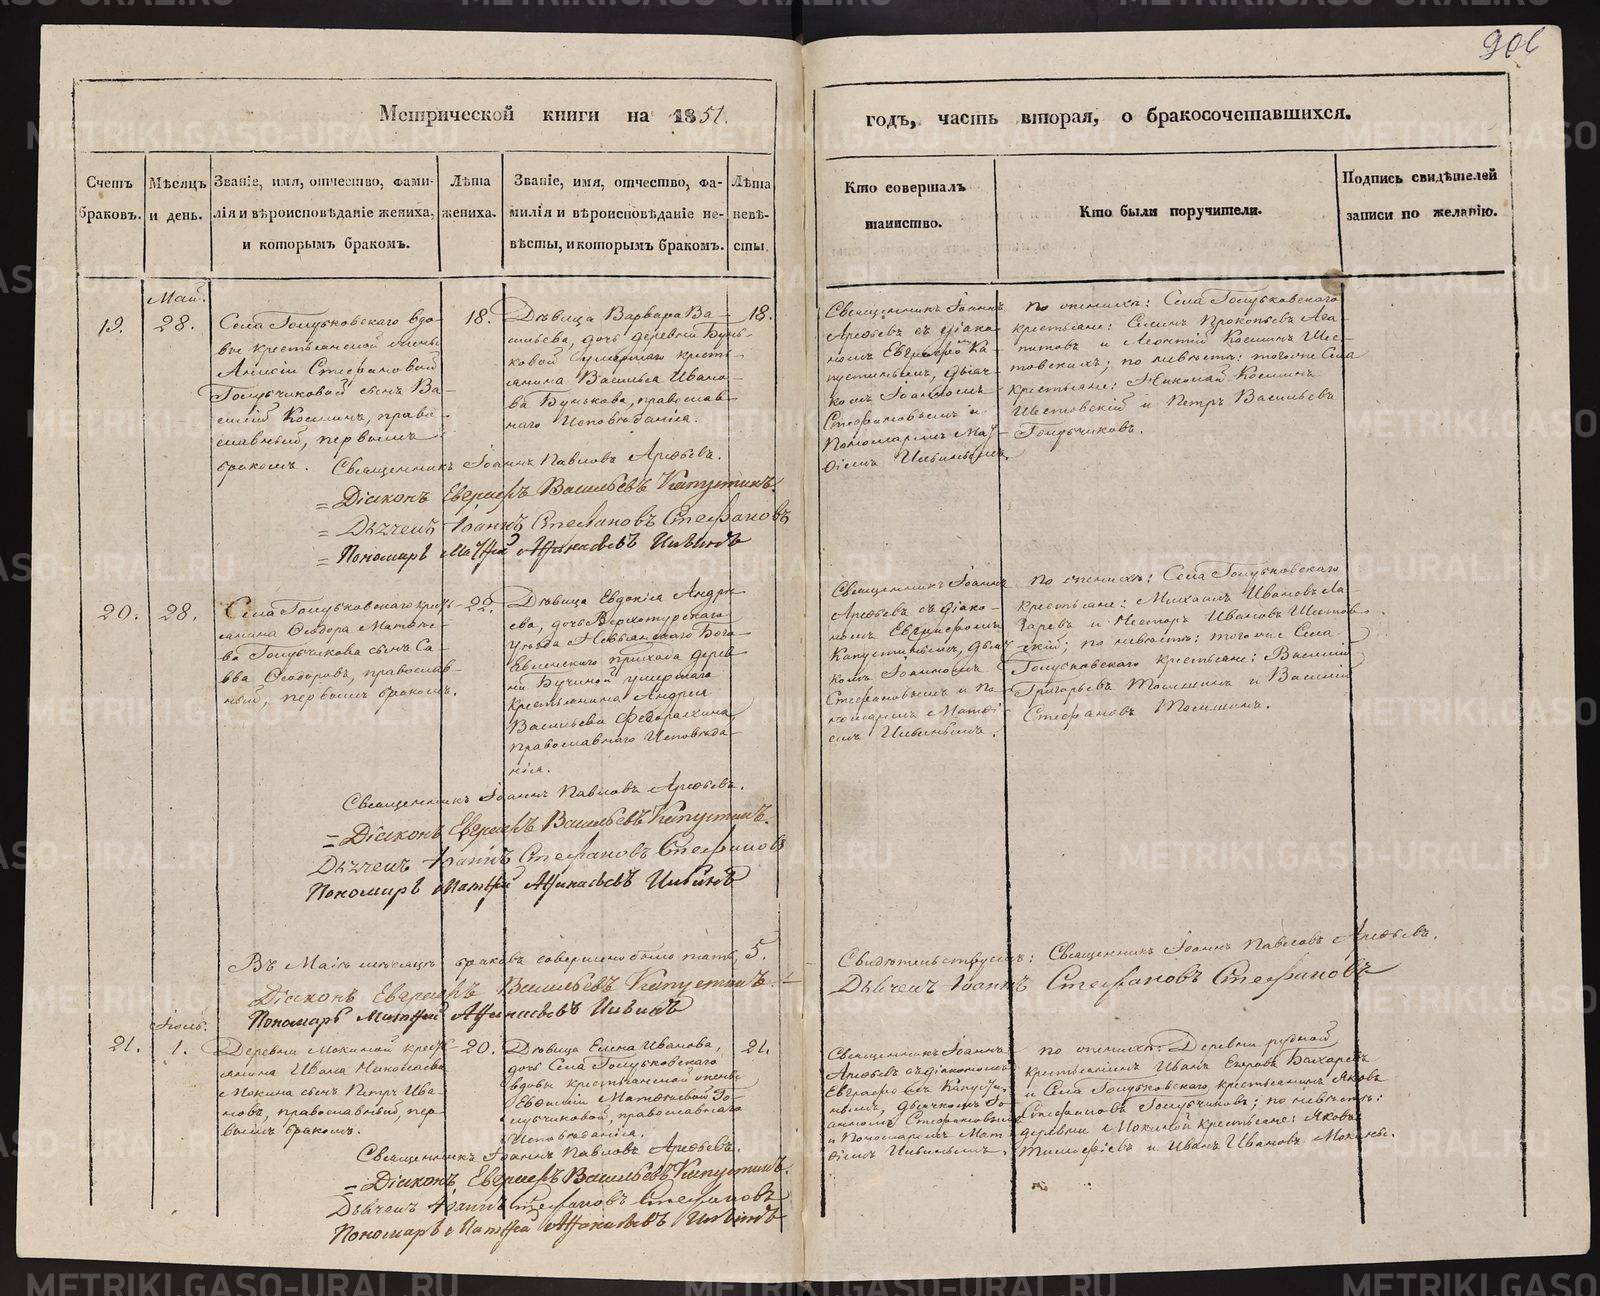 906
Метрической книги на 1851.
годъ, часть вторая, о бракосочетавшихся.
Счетъ браковъ.
Мѣсяцъ и день.
Званіе, имя, отчество, фами-
лія и вѣроисповѣданіе жениха,
и которымъ бракомъ.
Лѣта жениха.
Званіе, имя, отчество, фа-
милія и вѣроисповѣданіе не-
вѣсты, и которымъ бракомъ.
Лѣта невѣ-
сты.
Кто совершалъ
таинство.
Кто были поручители.
Подпись свидѣтелей
записи по желанію.
Май.
19.
28.
Села Голубковскаго вдо-
вы крестьянской жены
Анисіи Стефановой
Голубчиковой сынъ Ва-
силій Косминъ, право-
славный, первымъ
бракомъ.
18.
Дѣвица Варвара Ва-
сильева, дочь деревни Бунь-
ковой умершаго кресть-
янина Василья Ивано-
ва Бунькова, православ-
наго исповѣданія.
18.
Священникъ Іоаннъ
Арефьевъ съ діако-
номъ Евграфомъ Ка-
пустинымъ, дьяч-
комъ Іоанномъ
Стефановымъ и
Пономаремъ Мат-
ѳіемъ Ильинымъ.
По женихѣ: Села Голубковскаго
крестьяне: Прокопьевъ Ага-
питовъ и Леонтій Косминъ Шес-
товскихъ; по невѣстѣ: тогоже Села
крестьяне: Николай Косминъ
Шестовскій и Петръ Васильевъ
Голубчиковъ.
Священникъ Іоаннъ Павловъ Арефьевъ.
= Діаконъ Евграфъ Васильевъ Капустинъ.
= Дьячекъ Іоаннъ Стефановъ Стефановъ
= Пономарь Матѳей Аѳанасьевъ Ильинъ
20.
28.
Села Голубковскаго кресть-
янина Ѳеодора Матвѣе-
ва Голубчикова сынъ Са-
вва Ѳеодоровъ, православ-
ный, первымъ бракомъ.
22.
Дѣвица Евдокія Андре-
ева, дочь Верхотурскаго
уѣзда Невьянскаго Бого-
явленскаго прихода дерев-
ни Бучиной умершаго
крестьянина Андрея
Васильева Федорахина,
православнаго исповѣда-
нія.
Священникъ Іоаннъ
Арефьевъ съ діако-
номъ Евграфомъ
Капустинымъ, дьяч-
комъ Іоанномъ
Стефановымъ и По-
номаремъ Матѳі-
емъ Ильинымъ.
По женихѣ: Села Голубковскаго
крестьяне: Михаилъ Ивановъ Ла-
заревъ и Несторъ Ивановъ Шестов-
скій; по невѣстѣ: тогоже Села
Голубковскаго крестьяне: Василій
Григорьевъ Томшинъ и Василій
Стефановъ Томшинъ.
Священникъ Іоаннъ Павловъ Арефьевъ.
= Діаконъ Евграфъ Васильевъ Капустинъ.
Дьячекъ Іоаннъ Стефановъ Стефановъ
Пономарь Матѳей Аѳанасьевъ Ильинъ
Въ Маіѣ мѣсяцѣ браковъ совершено было пять, 5.
Свидѣтельствуемъ: Священникъ Іоаннъ Павловъ Арефьевъ.
Діаконъ Евграфъ Васильевъ Капустинъ.
Дьячекъ Іоаннъ Стефановъ Стефановъ
Пономарь Матѳей Аѳанасьевъ Ильинъ
21.
1.
Деревни Мокиной кресть-
янина Ивана Николаева
Мокина сынъ Петръ Ива-
новъ, православный, пер-
вымъ бракомъ.
20.
Дѣвица Елена Иванова,
дочь Села Голубковскаго
вдовы крестьянской жены
Евфиміи Матвѣевой Го-
лубчиковой, православнаго
исповѣданія.
21.
Священникъ Іоаннъ
Арефьевъ съ діакономъ
Евграфомъ Капусти-
нымъ, дьячкомъ Іо-
анномъ Стефановымъ
и Пономаремъ Мат-
ѳіемъ Ильинымъ.
По женихѣ: Деревни Рудной
крестьянинъ Иванъ Егоровъ Бахаревъ
и Села Голубковскаго крестьянинъ Яковъ
Стефановъ Голубчиковъ; по невѣстѣ:
деревни Мокиной крестьяне: Яковъ
Тимофеевъ и Иванъ Ивановъ Мокины.
Священникъ Іоаннъ Павловъ Арефьевъ.
= Діаконъ Евграфъ Васильевъ Капустинъ.
Дьячекъ Іоаннъ Стефановъ Стефановъ
Пономарь Матѳей Аѳанасьевъ Ильинъ
METRIKI.GASO-URAL.RU